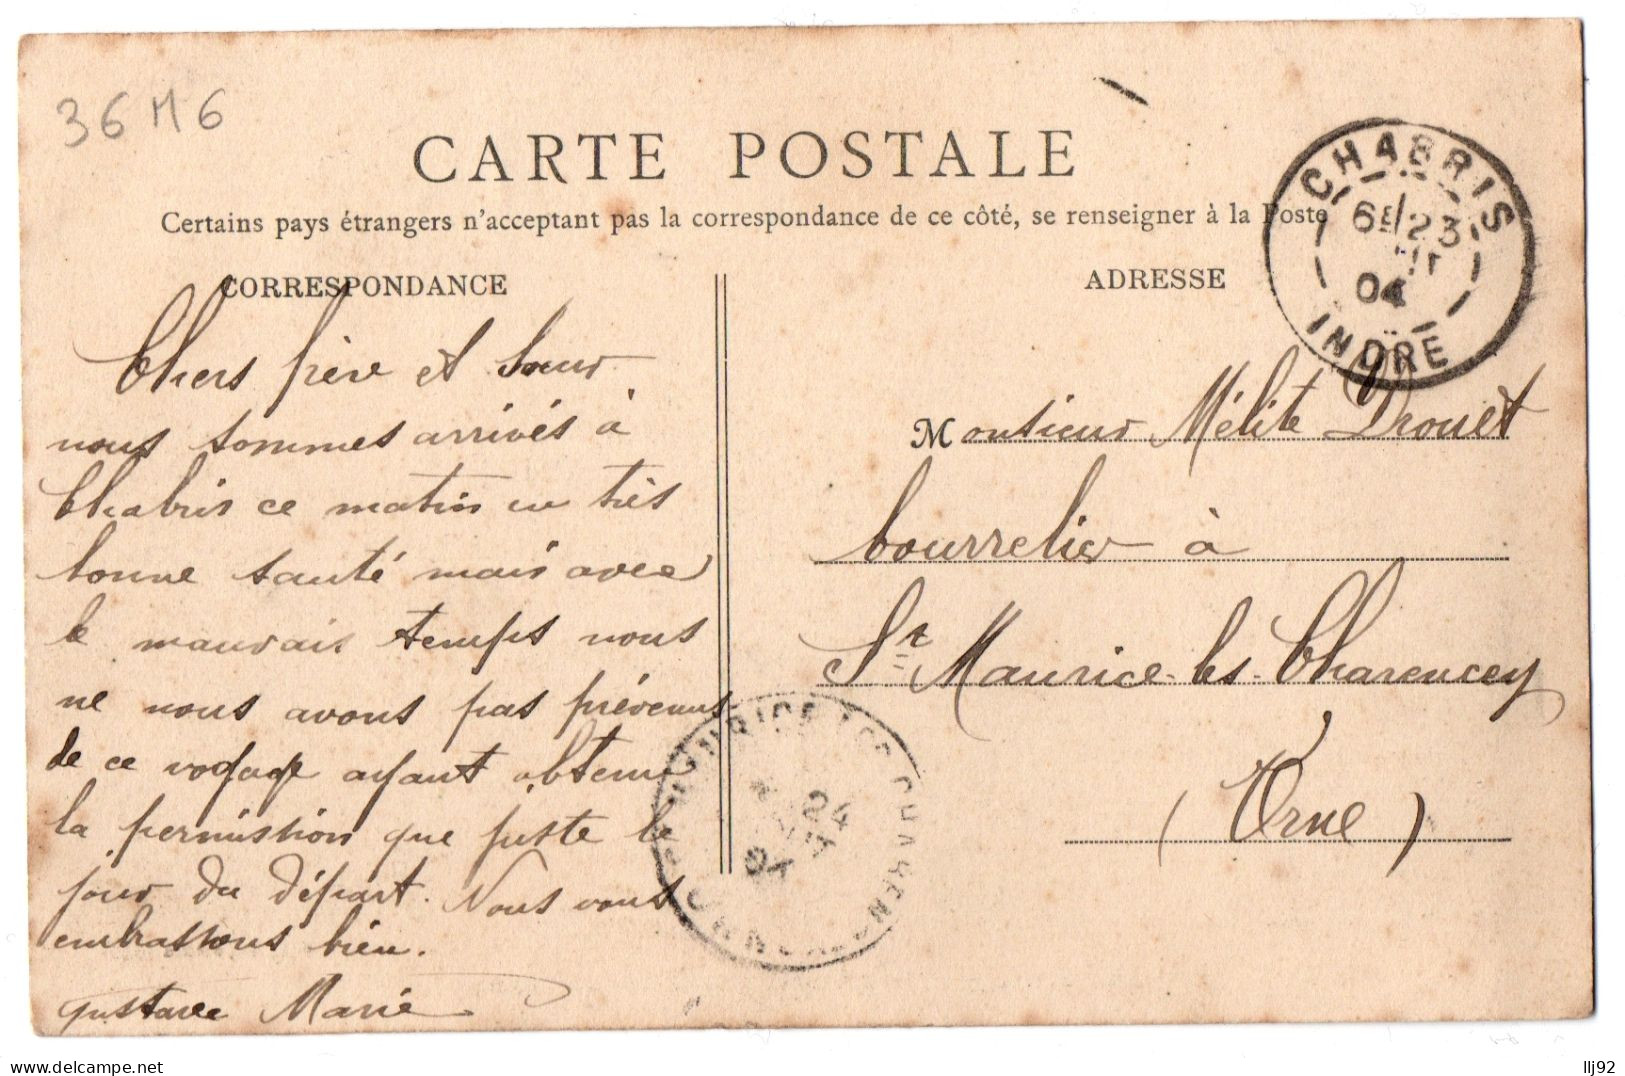 36 M 6
CARTE POSTALE
Certains pays étrangers n'acceptant pas la correspondance de ce côté, se renseigner à la Poste
CHABRIS
6E 23
04
INDRE
CORRESPONDANCE
Chers frère et Sœur
nous sommes arrivés à
Chabris ce matin en très
bonne santé mais avec
le mauvais temps nous
ne vous avons pas prévenus
de ce voyage ayant obtenu
la permission que juste le
jour du départ. Nous vous
embrassons bien.
Gustave Marie
ADRESSE
Monsieur Mélite Drouet
bourrelier à
St Maurice-les-Charencey
(Orne)
MAURICE LES CHAREN
24
04
delcampe.net
llj92